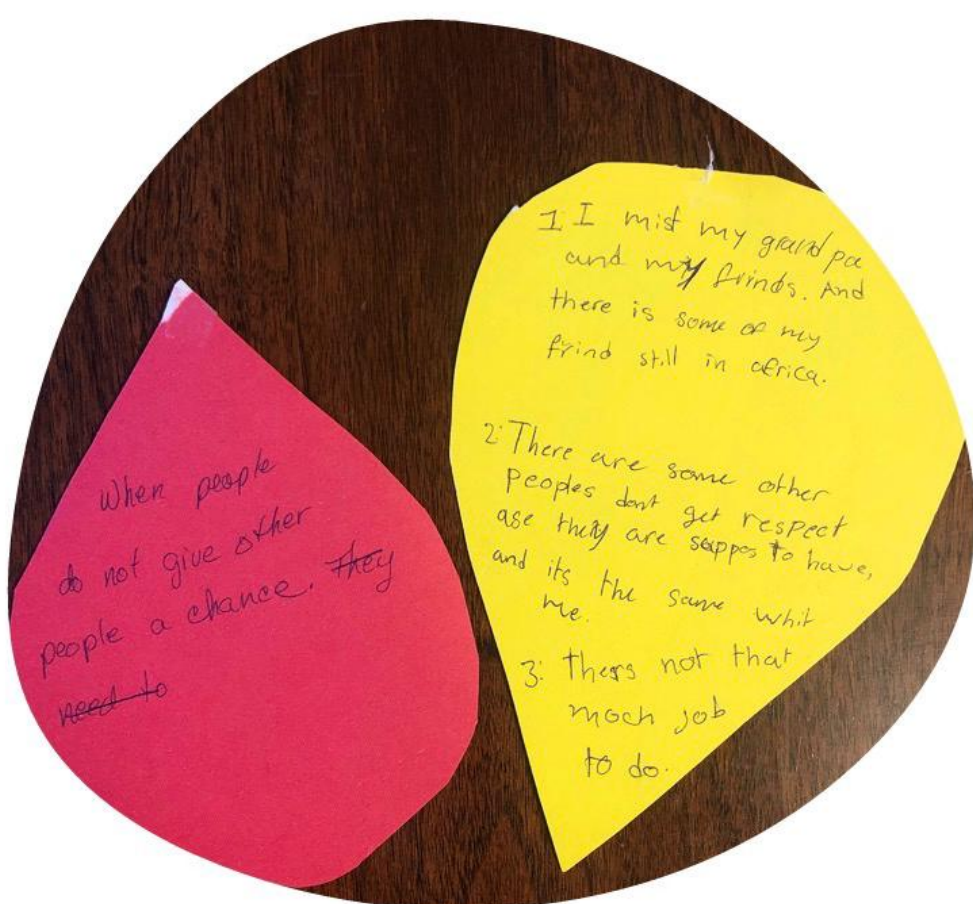 When people
do not give other
people a chance. They
need to
1: I mist my grandpa
and my frinds. And
there is some of my
frind still in africa.
2: There are some other
peoples dont get respect
ase they are suppos to have,
and its the same whit
me.
3: Thers not that
moch job
to do.